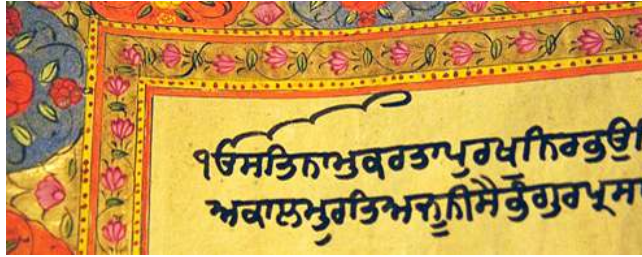 ੧ਓਸਤਿਨਾਮੁਕਰਤਾਪੁਰਖੁਨਿਰਭਉ
ਅਕਾਲਮੂਰਤਿਅਜੂਨੀਸੈਭੰਗੁਰਪ੍ਰਸਾ